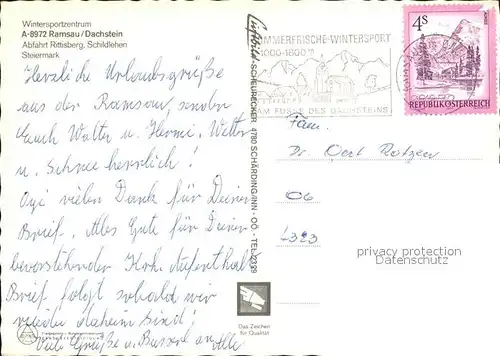 Wintersportzentrum
A-8972 Ramsau/Dachstein
Abfahrt Rittisberg, Schildlehen
Steiermark
Herzliche Urlaubsgrüße
aus der Ramsau, senden
Euch Walter u. Hermi. Wetter
u. Schnee herrlich!
vielen Dank für Deinen
Brief. Alles Gute für Deinen
bevorstehenden Krh. Aufenthalt
Brief folgt sobald wir
wieder daheim sind!
Viele Grüße u. Bussi an Alle
SCHEURECKER 4780 SCHÄRDING/INN - OÖ. - TEL.
SOMMERFRISCHE-WINTERSPORT
1000-1800 m
AM FUSSE DES DACHSTEINS
4 S
REPUBLIK ÖSTERREICH
Fam.
Dr.
06
privacy protection
Datenschutz
Das Zeichen
für Qualität